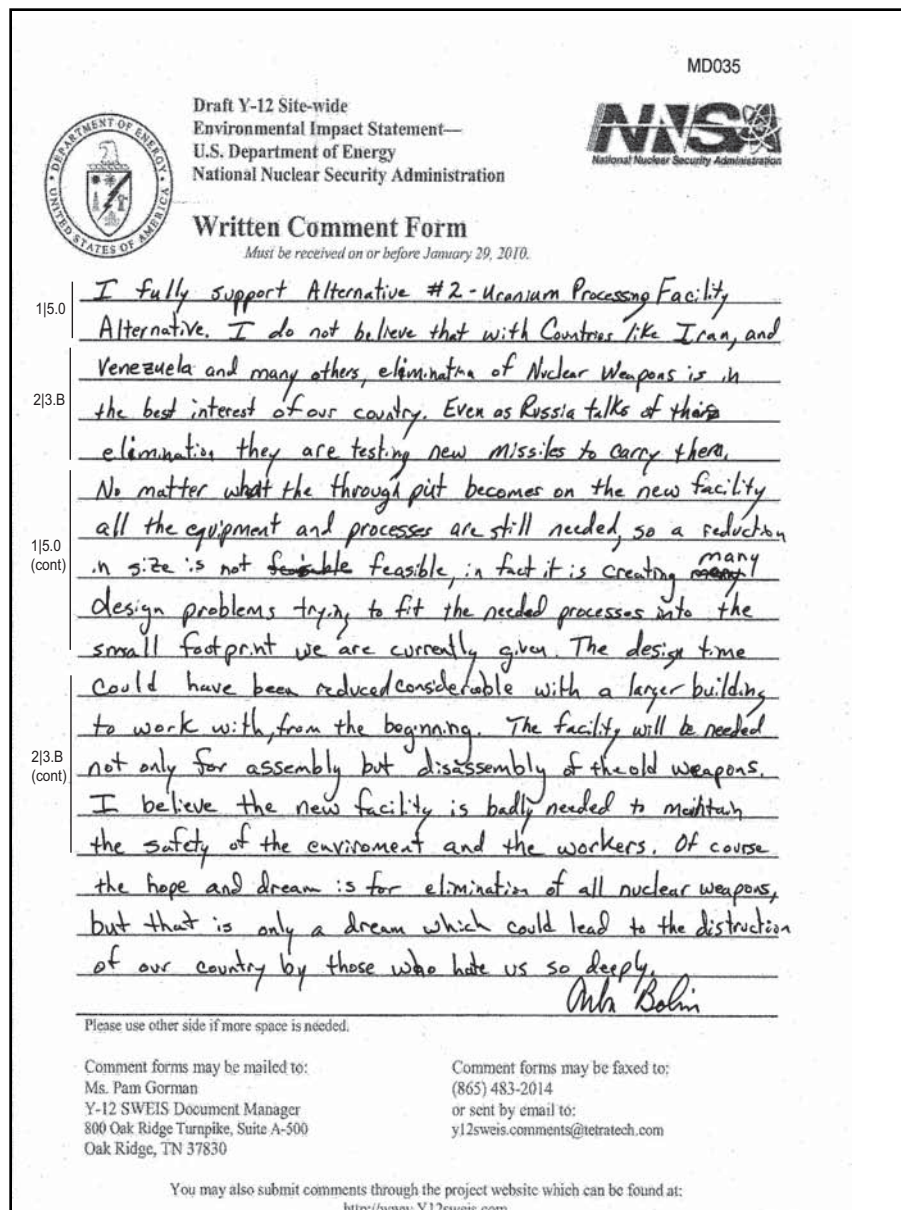 MD035
DEPARTMENT OF ENERGY
UNITED STATES OF AMERICA
Draft Y-12 Site-wide
Environmental Impact Statement—
U.S. Department of Energy
National Nuclear Security Administration
NNSA
National Nuclear Security Administration
Written Comment Form
Must be received on or before January 29, 2010.
1|5.0
I fully support Alternative #2 - Uranium Processng Facility
Alternative. I do not believe that with Countries like Iran, and
2|3.B
Venezuela and many others, elimination of Nuclear Weapons is in
the best interest of our country. Even as Russia talks of
elimination they are testing new missiles to carry them.
1|5.0
(cont)
No matter what the through put becomes on the new facility
all the equipment and processes are still needed, so a reduction
in size is not feasible, in fact it is creating many
design problems trying to fit the needed processes into the
small footprint we are currently given. The design time
2|3.B
(cont)
could have been reduced considerable with a larger building
to work with, from the beginning. The facility will be needed
not only for assembly but disassembly of the old weapons.
I believe the new facility is badly needed to maintain
the safety of the enviroment and the workers. Of course
the hope and dream is for elimination of all nuclear weapons,
but that is only a dream which could lead to the distruction
of our country by those who hate us so deeply.
Bolin
Please use other side if more space is needed.
Comment forms may be mailed to:
Ms. Pam Gorman
Y-12 SWEIS Document Manager
800 Oak Ridge Turnpike, Suite A-500
Oak Ridge, TN 37830
Comment forms may be faxed to:
(865) 483-2014
or sent by email to:
y12sweis.comments@tetratech.com
You may also submit comments through the project website which can be found at:
http://www.Y12sweis.com